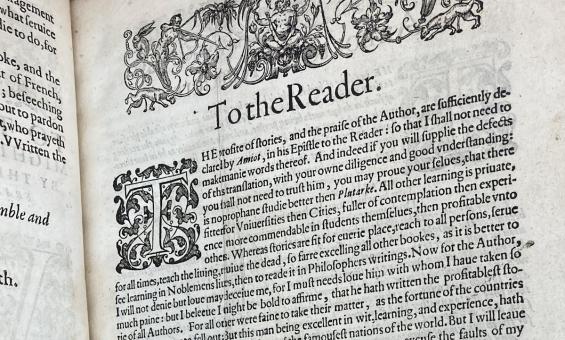 nagement
what seruice
die to do, for
oke, and the
r of French,
; beseeching
out to pardon
t, who prayeth
. VVritten the
mble and
th.
To the Reader.
THE profite of stories, and the praise of the Author, are sufficiently de-
clared by Amiot, in his Epistle to the Reader: so that I shall not need to
make manie words thereof. And indeed if you will supplie the defects
of this translation, with your owne diligence and good vnderstanding:
you shall not need to trust him, you may proue your selues, that there
is no prophane studie better then Plutarke. All other learning is priuate,
fitter for Vniuersities then Cities, fuller of contemplation then experi-
ence more commendable in students themselues, then profitable vnto
others. Whereas stories are fit for euerie place, reach to all persons, serue
for all times, teach the liuing, reuiue the dead, so farre excelling all other bookes, as it is better to
see learning in Noblemens liues, then to reade it in Philosophers writings. Now for the Author,
I will not denie but loue may deceiue me, for I must needs loue him with whom I haue taken so
much paine: but I beleeue I might be bold to affirme, that he hath written the profitablest sto-
rie of all Authors. For all other were faine to take their matter, as the fortune of the countries
fell out: But this man being excellent in wit, learning, and experience, hath
famousest nations of the world. But I will leaue
excuse the faults of my